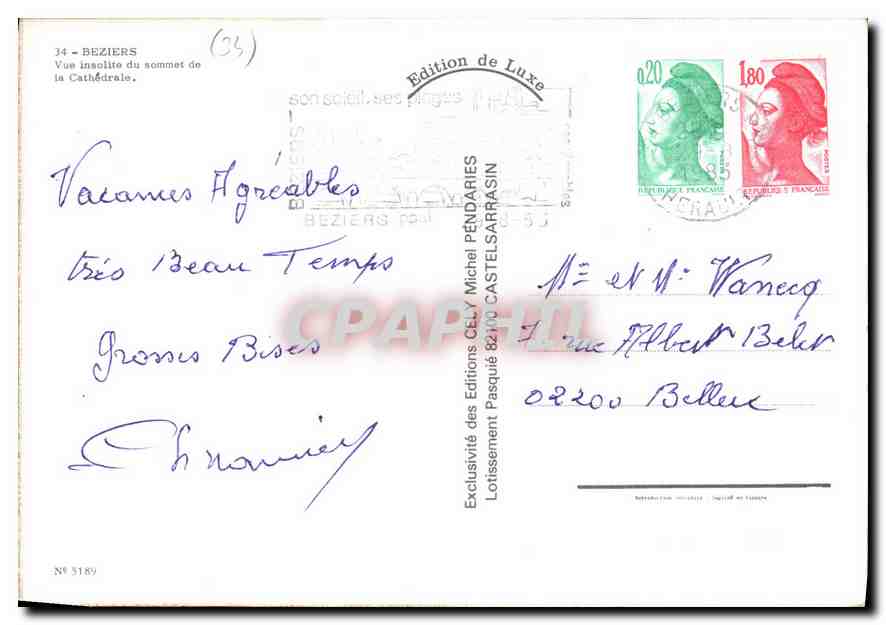 34 - BEZIERS
Vue insolite du sommet de
la Cathédrale.
(34)
Edition de Luxe
0,20
REPUBLIQUE FRANÇAISE
1,80
POSTES
REPUBLIQUE FRANÇAISE
HERAULT
son soleil, ses plages
BEZIERS
Vacances Agréables
très Beau Temps
Grosses Bises
Exclusivité des Editions CELY Michel PENDARIES
Lotissement Pasquié 82100 CASTELSARRASIN
CPAPHIL
Mme et Mr
7 rue Albert
02200 Belleu
Nº 5189